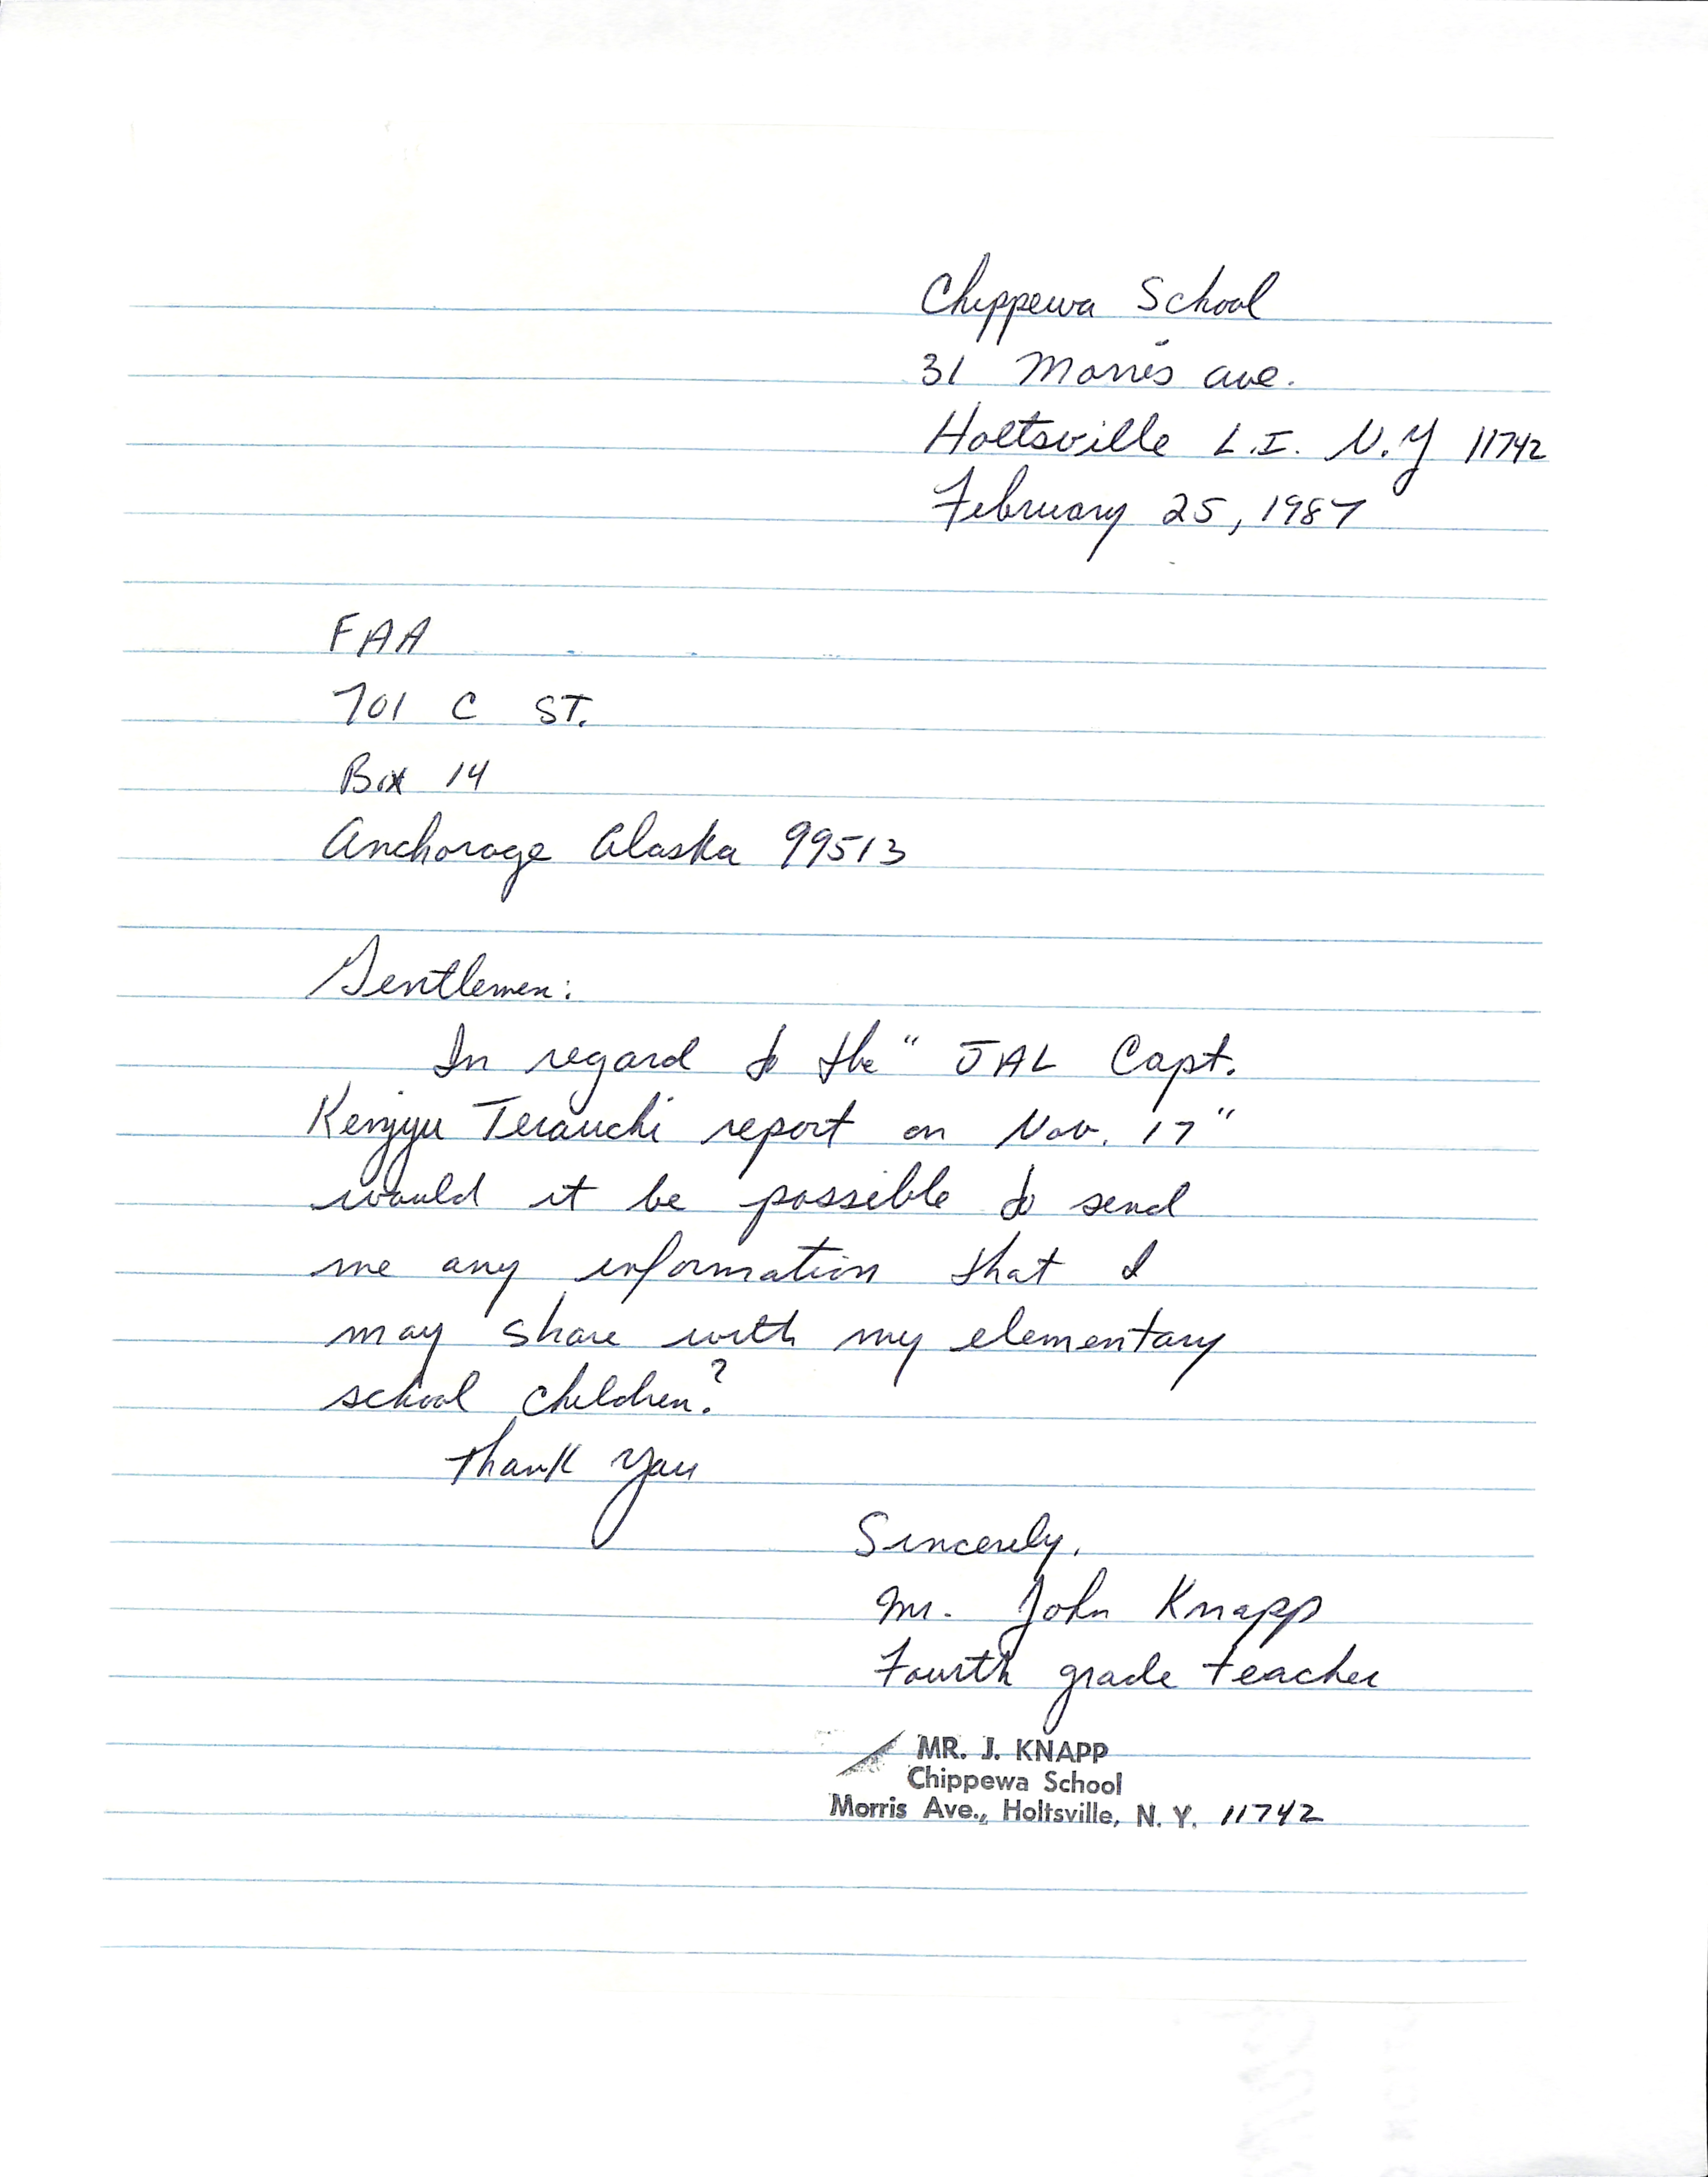 Chippewa School
31 Morris ave.
Holtsville L.I. N.Y 11742
February 25, 1987
FAA
701 C ST.
Box 14
Anchorage Alaska 99513
Gentlemen:
In regard to the " JAL Capt.
Kenjyu Terauchi report on Nov. 17"
would it be possible to send
me any information that I
may share with my elementary
school children?
Thank You
Sincerely,
Mr. John Knapp
Fourth grade teacher
MR. J. KNAPP
Chippewa School
Morris Ave., Holtsville, N. Y. 11742